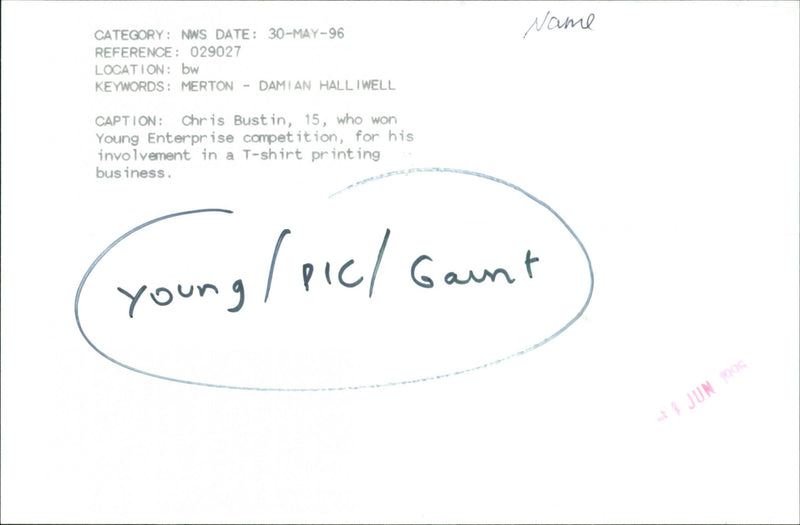 Name
CATEGORY: NWS DATE: 30-MAY-96
REFERENCE: 029027
LOCATION: bw
KEYWORDS: MERTON - DAMIAN HALLIWELL
CAPTION: Chris Bustin, 15, who won
Young Enterprise competition, for his
involvement in a T-shirt printing
business.
Young/PIC/Gaunt
JUN